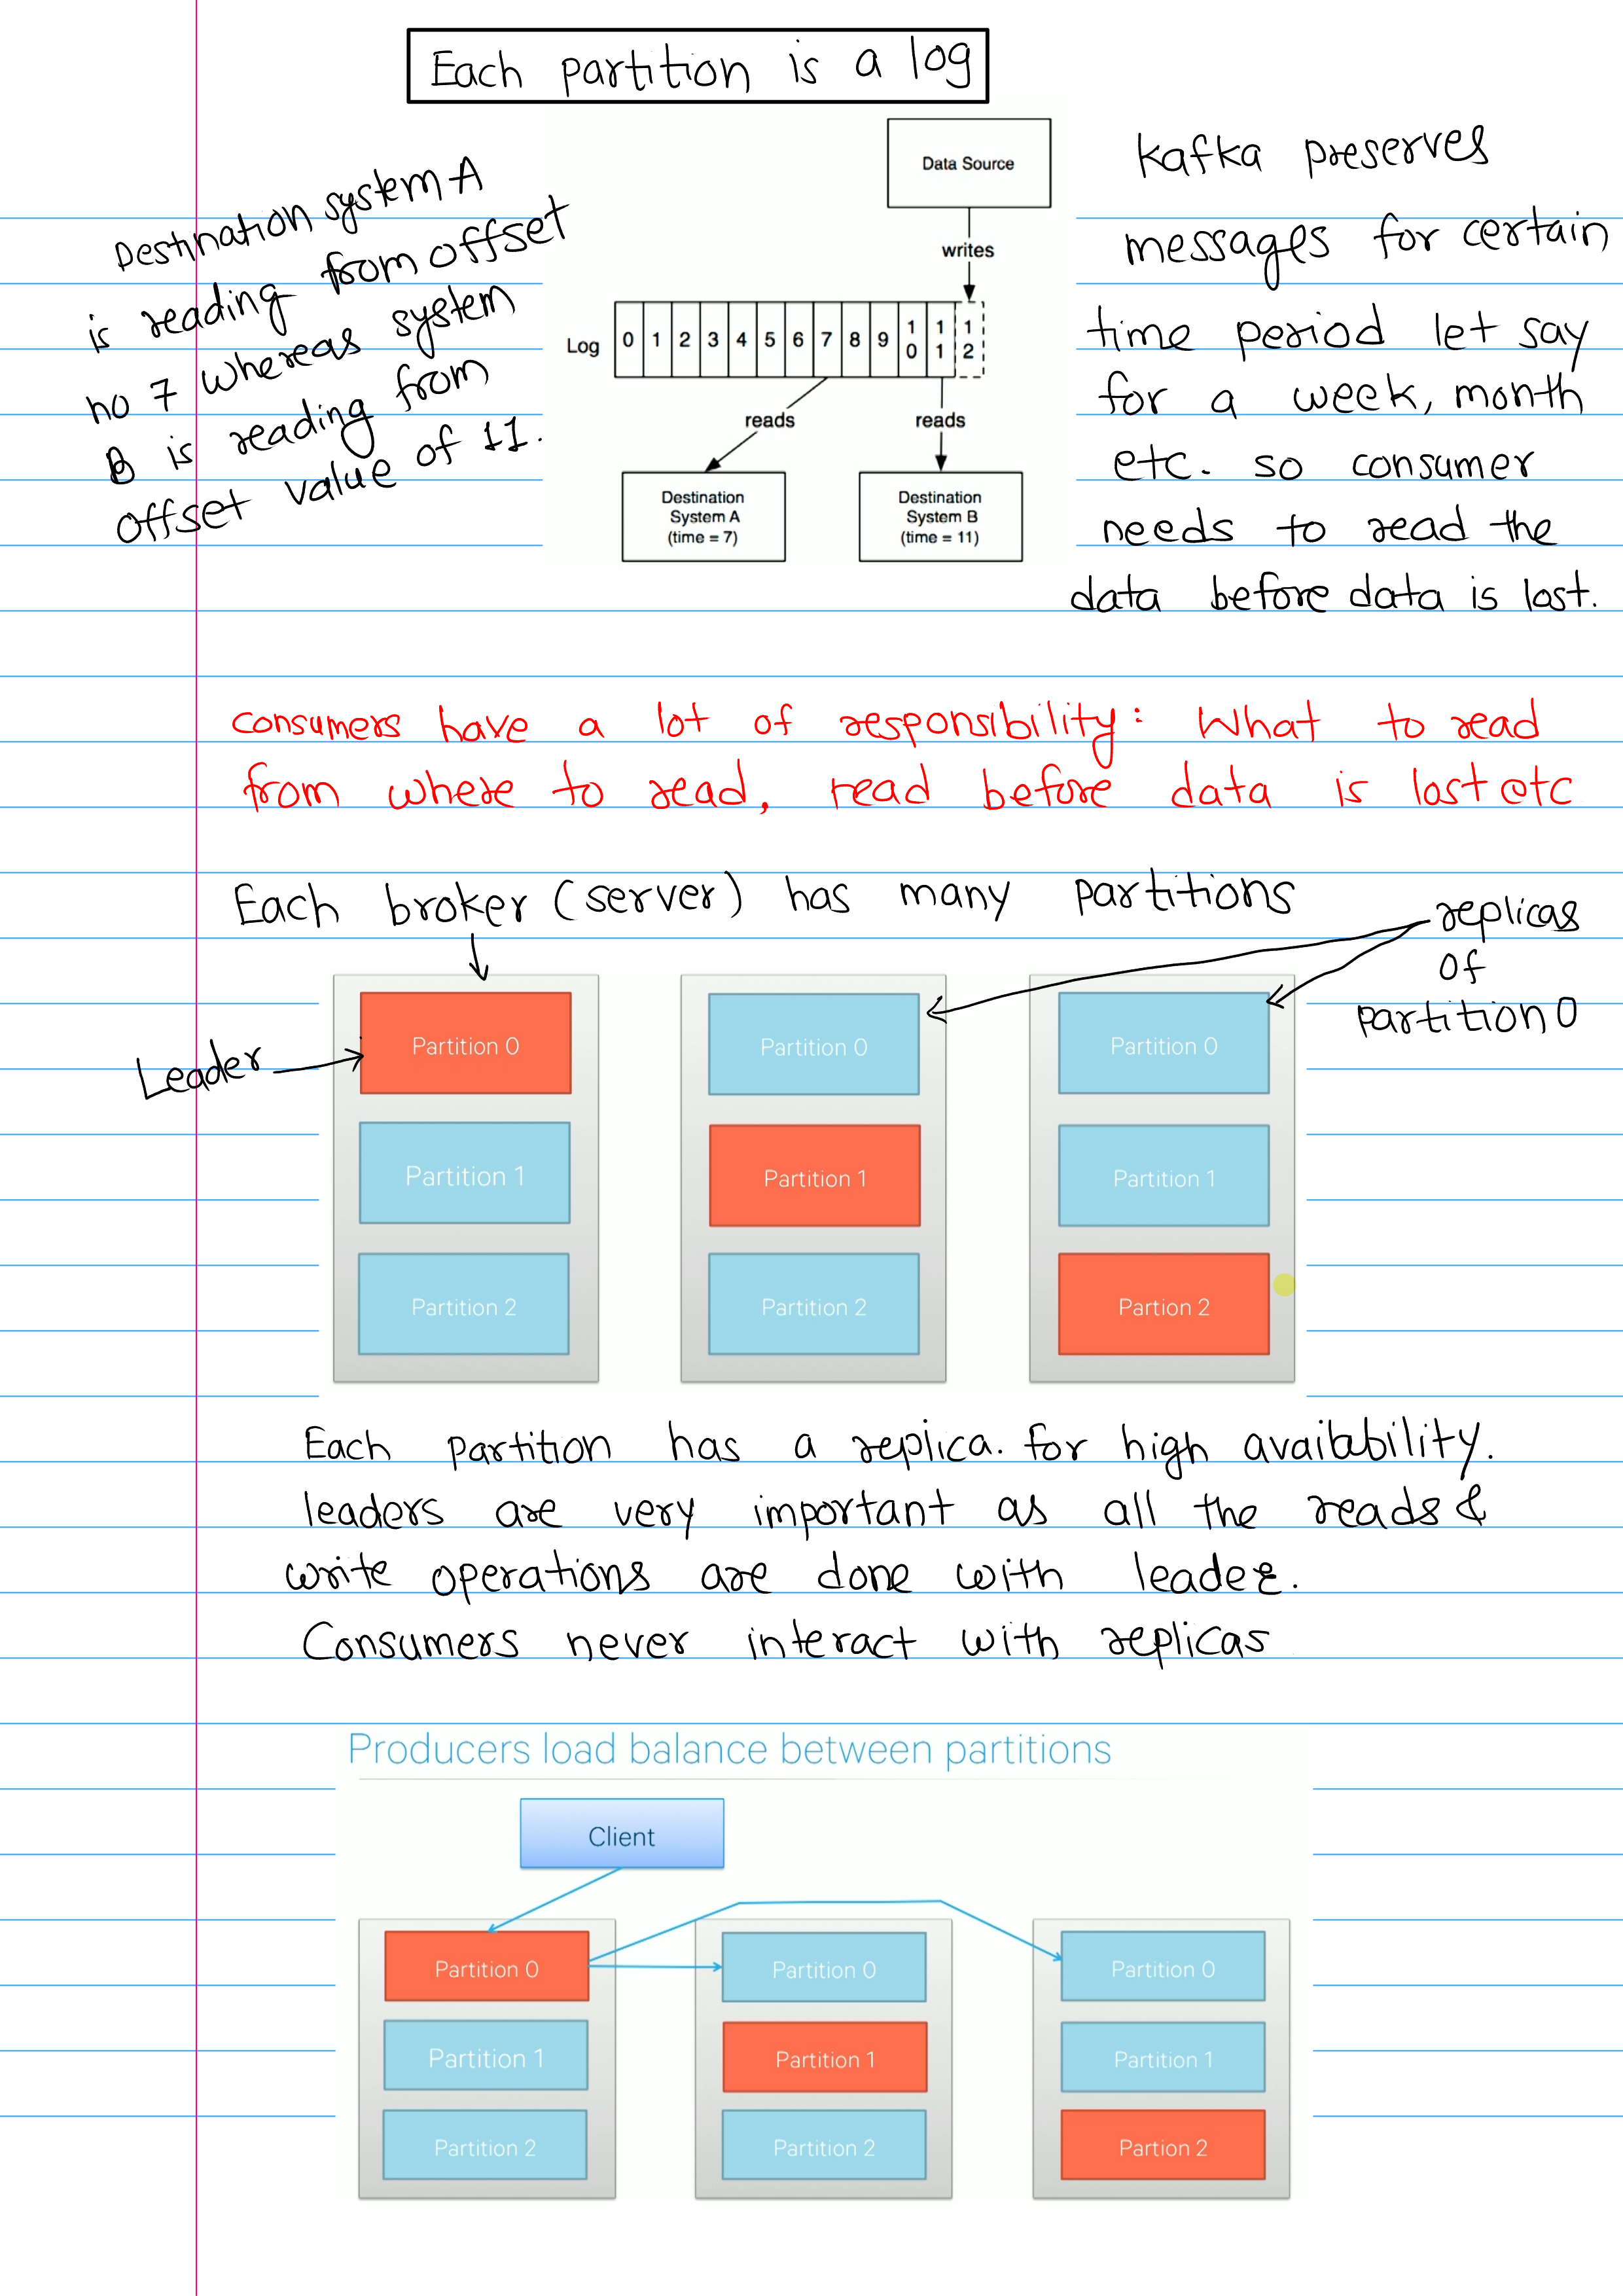 Each partition is a log
Destination system A
is reading from offset
no 7 whereas system
B is reading from
offset value of 11.
Data Source
writes
Log 0 1 2 3 4 5 6 7 8 9 10 11 12
reads reads
Destination
System A
(time = 7)
Destination
System B
(time = 11)
Kafka preserves
messages for certain
time period let say
for a week, month
etc. so consumer
needs to read the
data before data is lost.
consumers have a lot of responsibility: What to read
from where to read, read before data is lost etc
Each broker (server) has many partitions
replicas
of
partition 0
Leader
Partition 0 Partition 0 Partition 0
Partition 1 Partition 1 Partition 1
Partition 2 Partition 2 Partion 2
Each partition has a replica. for high availability.
leaders are very important as all the reads &
write operations are done with leader.
Consumers never interact with replicas
Producers load balance between partitions
Client
Partition 0 Partition 0 Partition 0
Partition 1 Partition 1 Partition 1
Partition 2 Partition 2 Partion 2